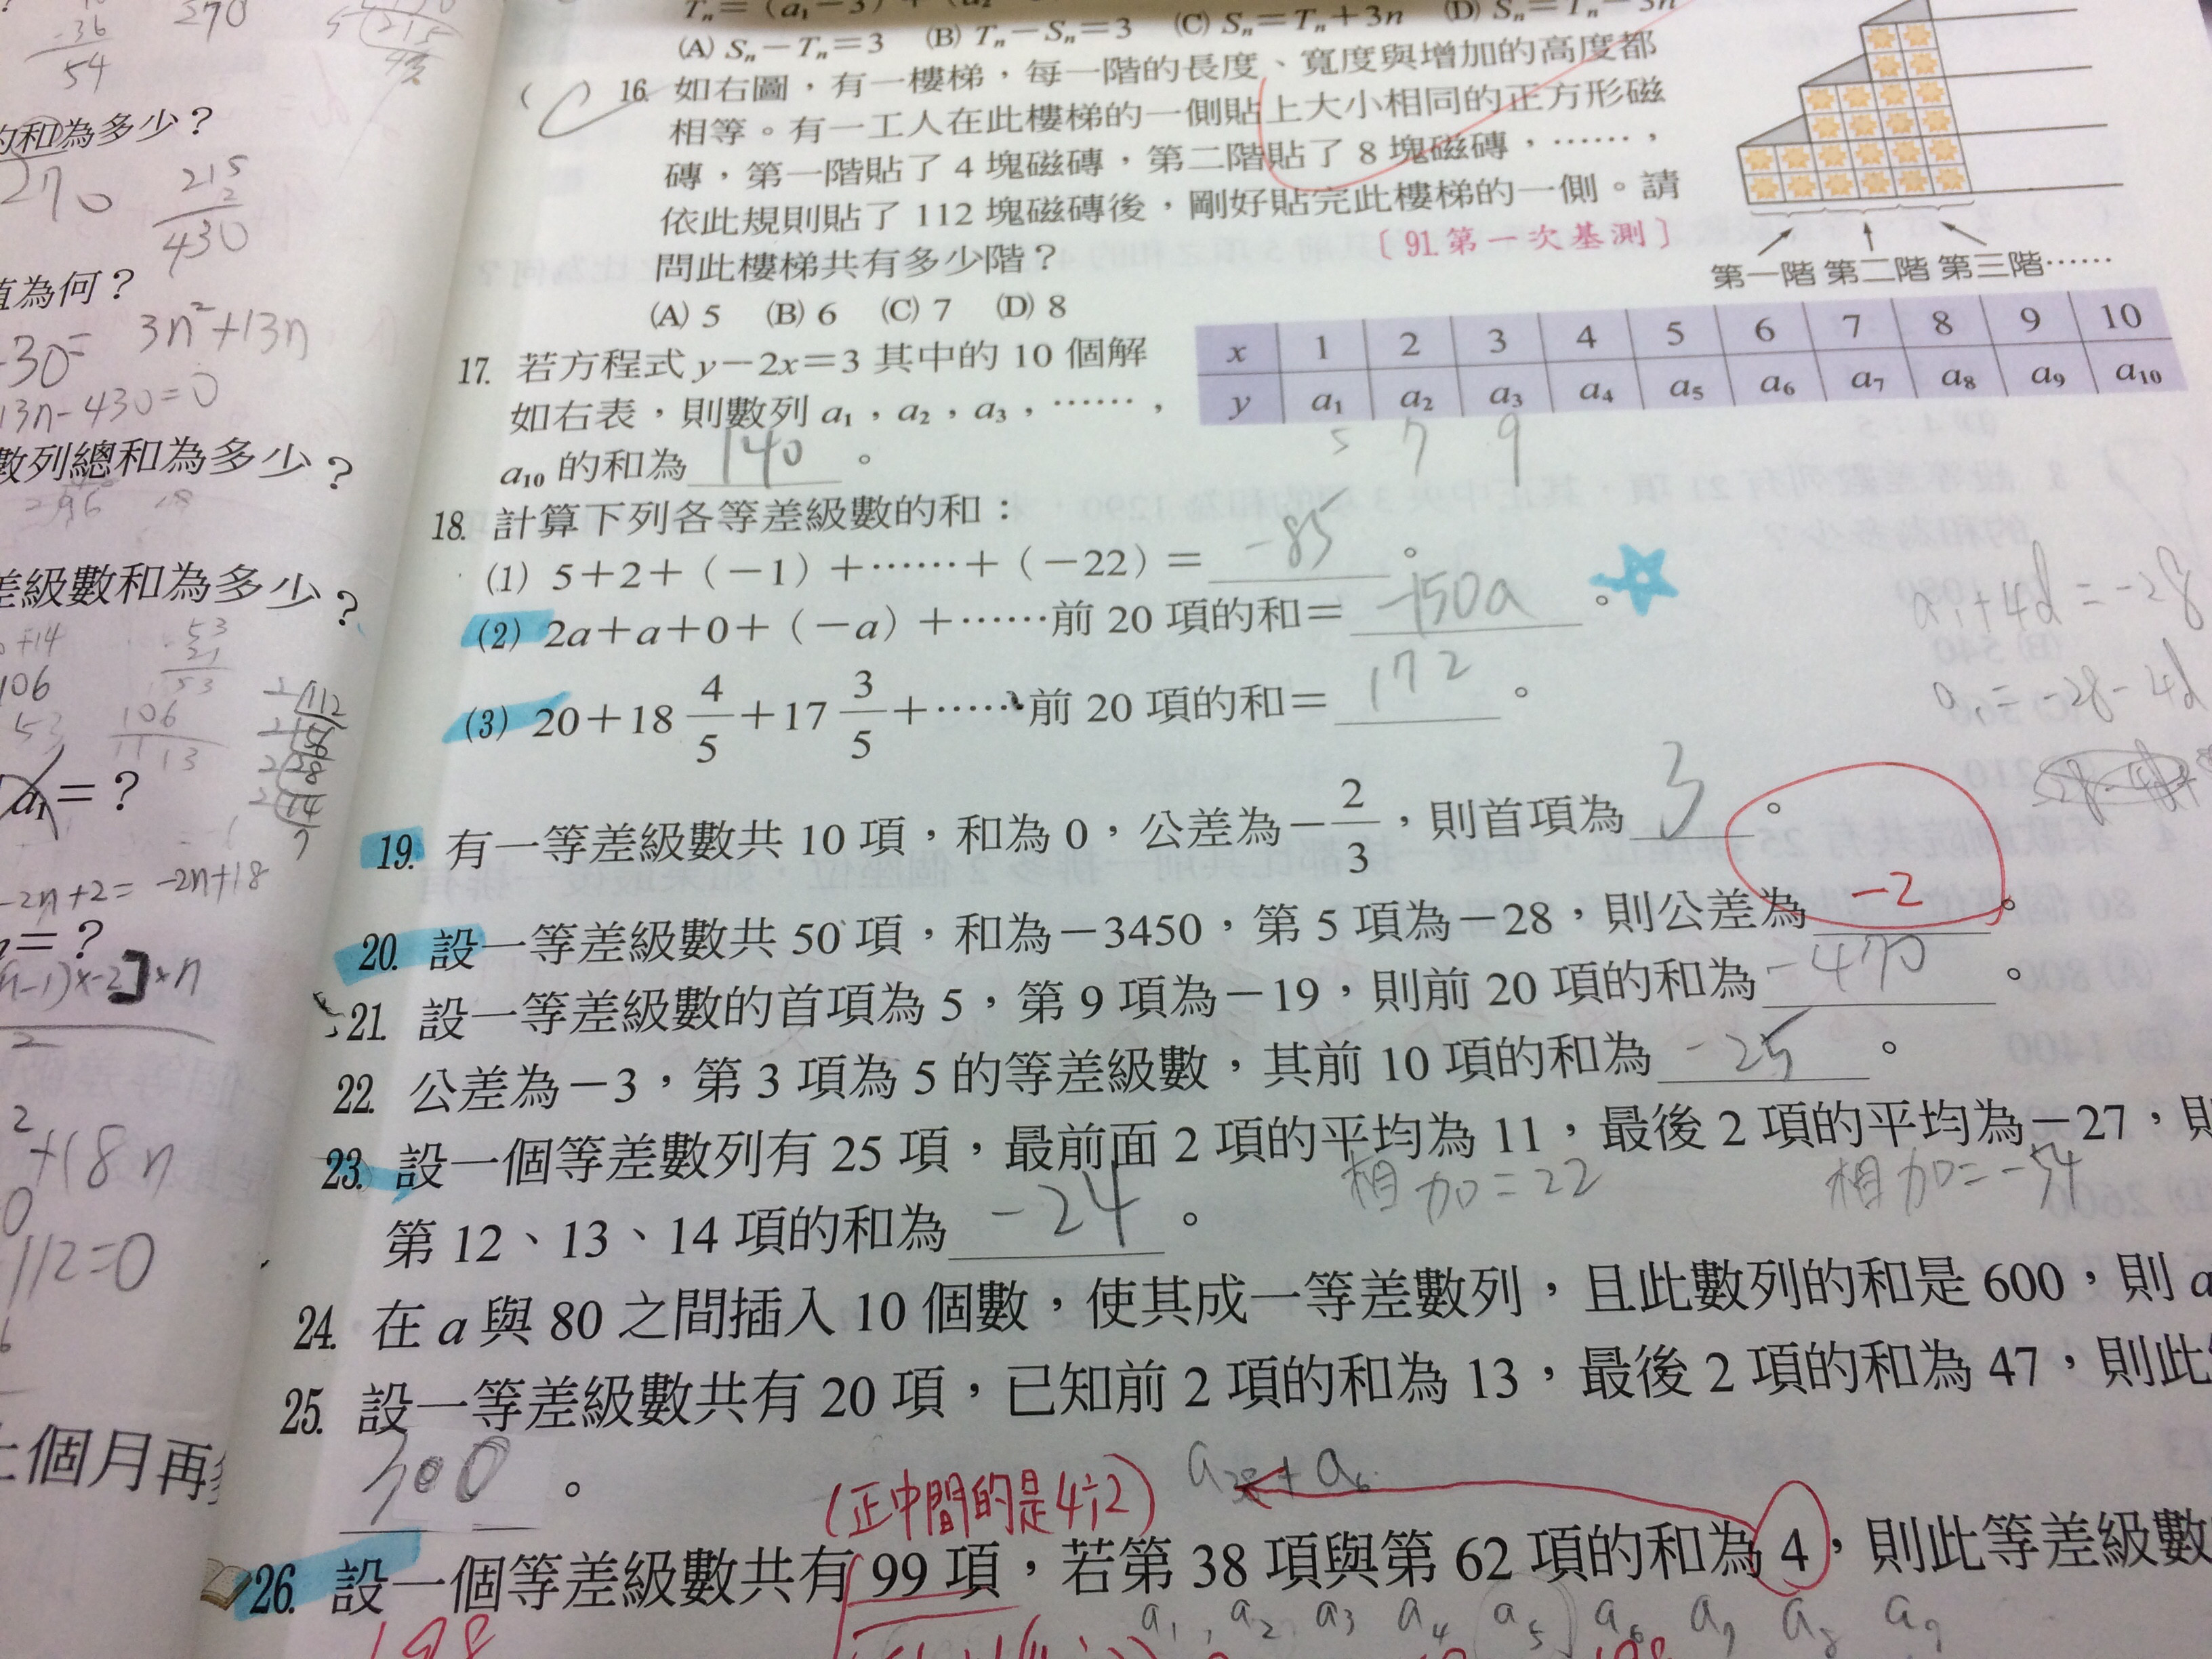 (A) Sₙ－Tₙ＝3 (B) Tₙ－Sₙ＝3 (C) Sₙ＝Tₙ＋3n (D) Sₙ＝Tₙ－3n
( C ) 16. 如右圖，有一樓梯，每一階的長度、寬度與增加的高度都
相等。有一工人在此樓梯的一側貼上大小相同的正方形磁
磚，第一階貼了 4 塊磁磚，第二階貼了 8 塊磁磚，……，
依此規則貼了 112 塊磁磚後，剛好貼完此樓梯的一側。請
問此樓梯共有多少階？ 〔91.第一次基測〕
(A) 5 (B) 6 (C) 7 (D) 8
第一階 第二階 第三階……
17. 若方程式 y－2x＝3 其中的 10 個解
如右表，則數列 a₁，a₂，a₃，……，
a₁₀ 的和為 140 。
x 1 2 3 4 5 6 7 8 9 10
y a₁ a₂ a₃ a₄ a₅ a₆ a₇ a₈ a₉ a₁₀
5 7 9
18. 計算下列各等差級數的和：
(1) 5＋2＋(－1)＋……＋(－22)＝ -85 。
(2) 2a＋a＋0＋(－a)＋……前 20 項的和＝ -150a 。
(3) 20＋18 4/5＋17 3/5＋……前 20 項的和＝ 172 。
a₁+4d=-28
a₁=-28-4d
19. 有一等差級數共 10 項，和為 0，公差為－2/3，則首項為 3 。
20. 設一等差級數共 50 項，和為－3450，第 5 項為－28，則公差為 -2 。
21. 設一等差級數的首項為 5，第 9 項為－19，則前 20 項的和為 -470 。
22. 公差為－3，第 3 項為 5 的等差級數，其前 10 項的和為 -25 。
23. 設一個等差數列有 25 項，最前面 2 項的平均為 11，最後 2 項的平均為－27，則
相加=22 相加=-54
第 12、13、14 項的和為 -24 。
24. 在 a 與 80 之間插入 10 個數，使其成一等差數列，且此數列的和是 600，則 a
25. 設一等差級數共有 20 項，已知前 2 項的和為 13，最後 2 項的和為 47，則此
300 。
(正中間的是4÷2) a₃₈+a₆
26. 設一個等差級數共有 99 項，若第 38 項與第 62 項的和為 4，則此等差級數
a₁, a₂ a₃ a₄ a₅ a₆ a₇ a₈ a₉
198
-36
54
270
的和為多少？
270
215
2
430
值為何？
-30= 3n²+13n
13n-430=0
數列總和為多少？
296 18
差級數和為多少？
+14
106
53
106
53
2 112
2 56
2 28
2 14
7
a₁＝？
-2n+2= -2n+18
＝？
(n-1)×-2]×n
2
²+18n
0
112=0
個月再